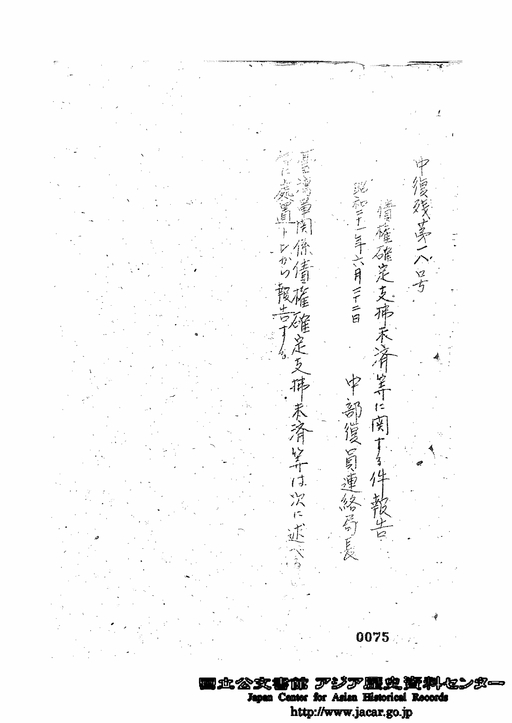 中復残第一八〇号
債権確定支拂未済等に関する件報告
昭和二十一年六月二十二日
中部復員連絡局長
軍関係債権確定支拂未済等は次に述べる
処置したから報告する
0075
国立公文書館 アジア歴史資料センター
Japan Center for Asian Historical Records
http://www.jacar.go.jp